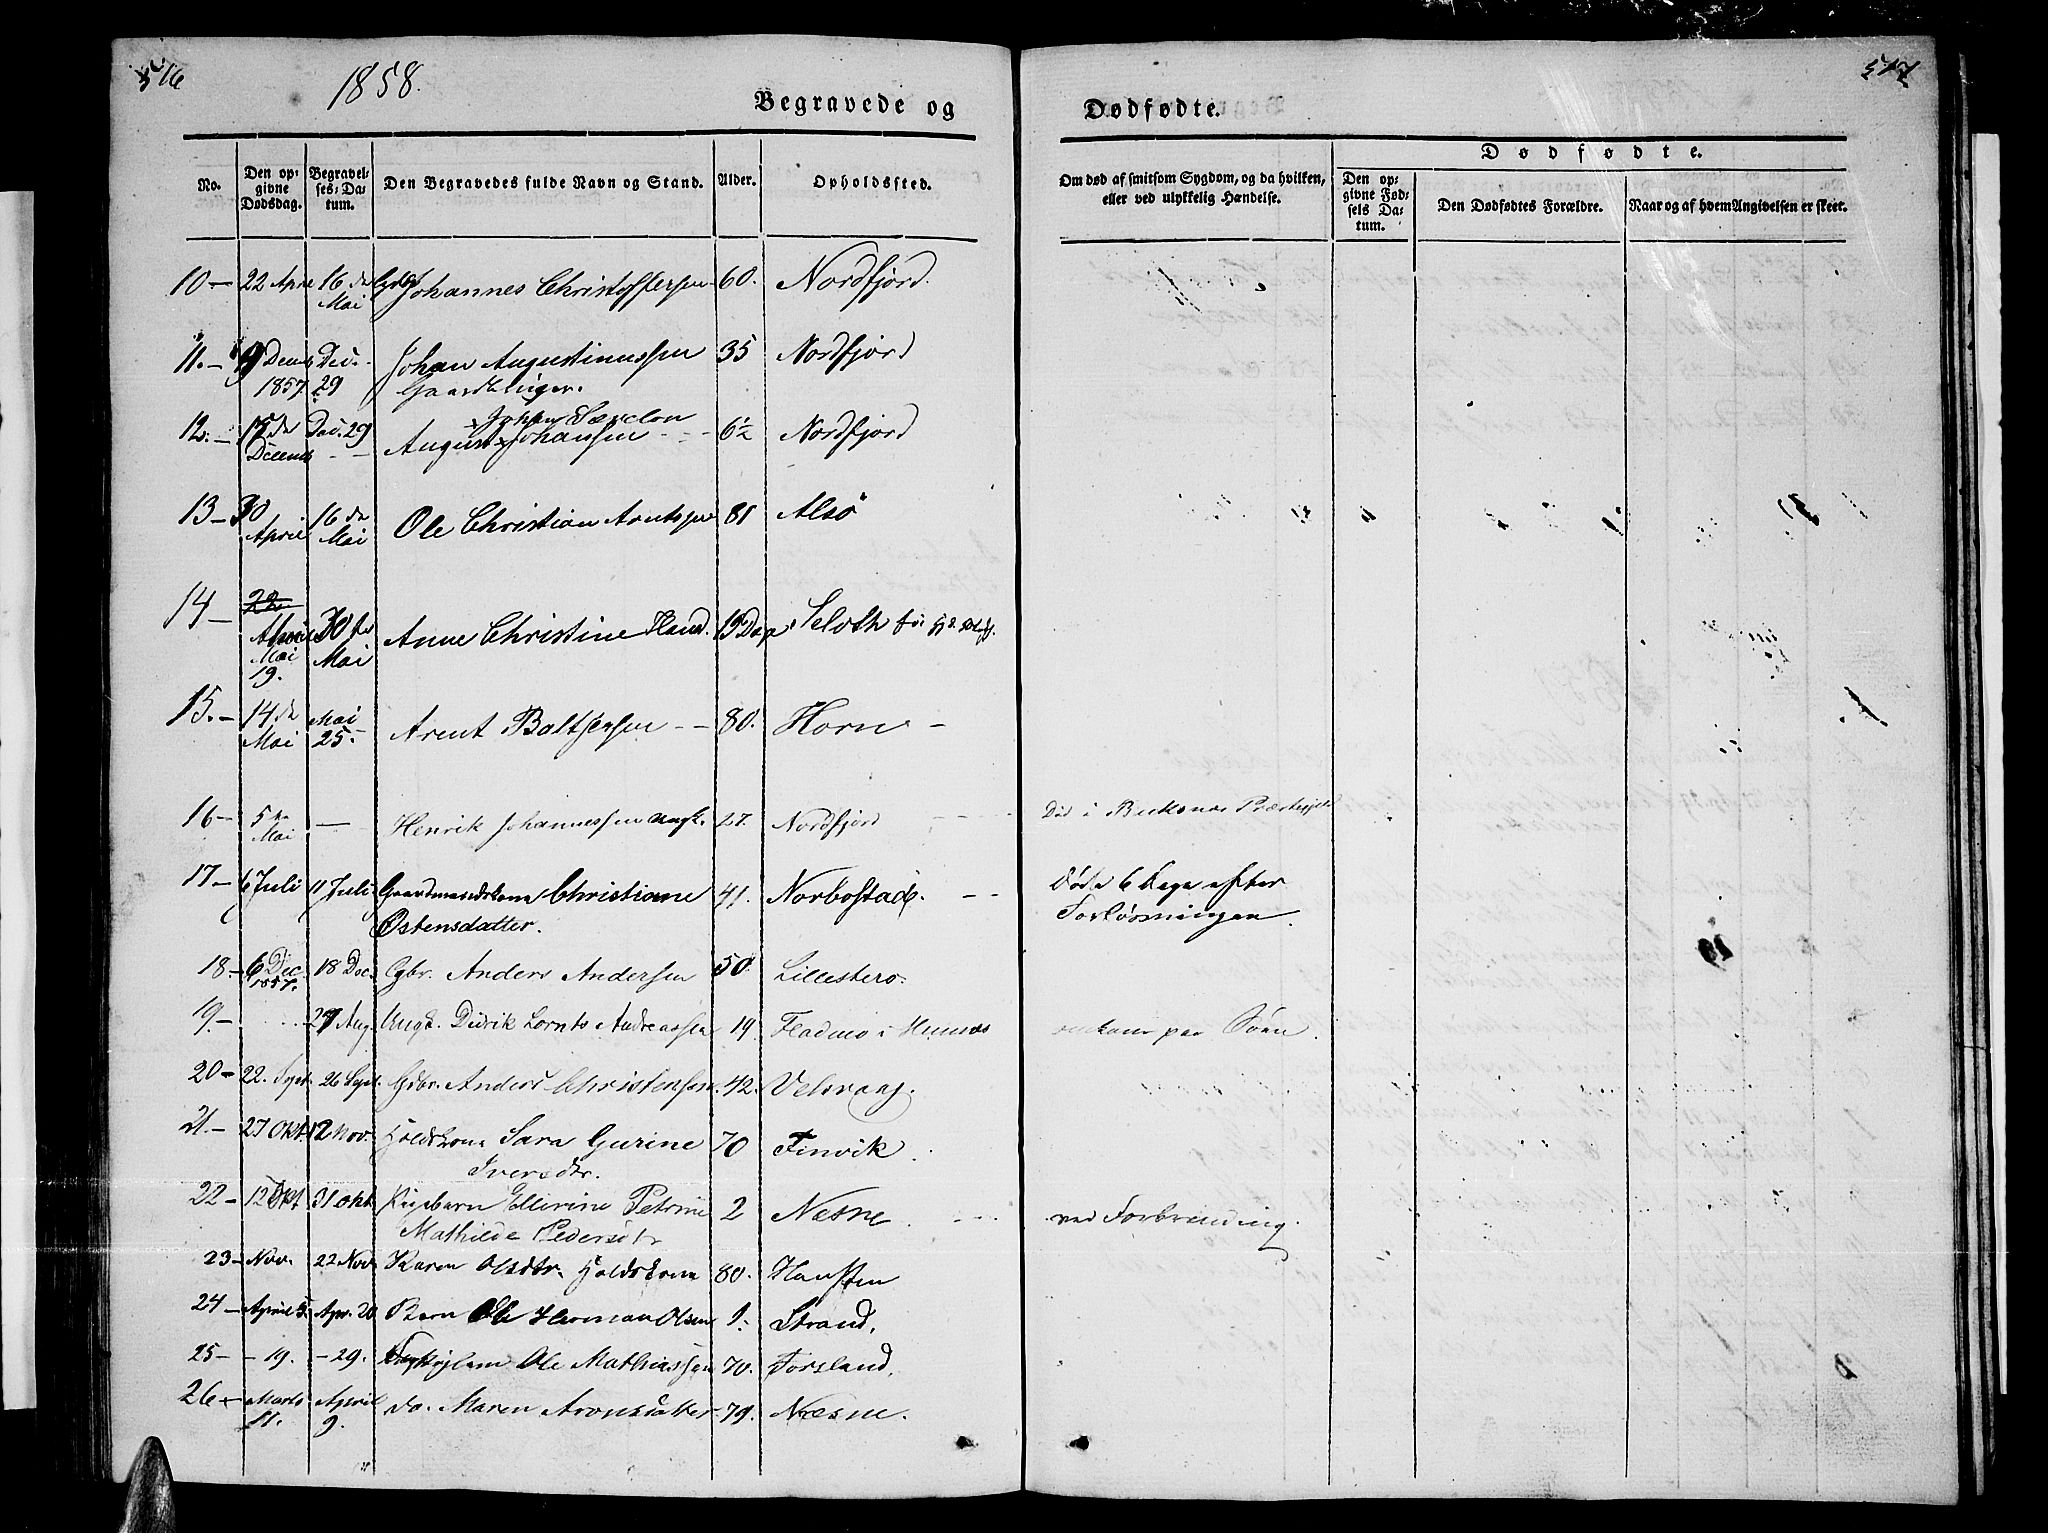 516
1858.
Begravede og
Dødfødte.
517
No.
Den opgivne Dødsdag.
Begravelses-Datum.
Den Begravedes fulde Navn og Stand.
Alder.
Opholdssted.
Om død af smitsom Sygdom, og da hvilken, eller ved ulykkelig Hændelse.
Dødfødte.
Den opgivne Fødsels Datum.
Den Dødfødtes Forældre.
Naar og af hvem Angivelsen er skeet.
10 – 22 April 16 de Mai Gdbr Johannes Christoffersen 60. Nordfjord.
11. – 9 Decemb 1857 Dec. 29 Johan Augustinussen 35 Nordfjord
12. – de Decemb Dec. 29 August Johansen 6½ Nordfjord
13 – 30 April 16 de Mai Ole Christian Arntsen 81 Alsø
14 – Mai 19. 30 te Mai Anne Christine 13 Dage Selvik
15. – 14 de Mai Mai 25. Arent Baltsersen 80. Horn
16 – 5 te Mai — Henrik Johannessen ungk. 27. Nordfjord Død i Præstegjeld
17 – 6 Juli 11 Juli Gaardmandskone Christiane 41. Norbostad. Døde 6 Dage efter
Østensdatter. Forløsningen.
18. – 6 Dec. 1857. 18 Dec. Gbr. Anders Andersen 50. Lillestero.
19 – 29 Aug. Ungk. Didrik Lornts Andreassen 19. Fladmo i Hemnæs omkom paa Søen.
20 – 22. Sept. 26 Sept. Gdbr. Anders Christensen. 42. Vekvang.
21. – 27 Okt. 12 Nov. Holdskone Sara Gurine 70 Finvik.
Iversdtr.
22 – 12 Okt 31 Okt. Pigebarn Ellerine Petrine 2 Nesne. ved Forbrending.
Mathilde Pedersdtr
23 – Nov. 22 Nov Karen Olsdtr. Holdskone 80. Hansten
24 – April 5. Apr. 20 Barn Ole Herman Olsen 1. Strand.
25 – – 19. – 29. Ole Mathiassen 70. Forsland.
26 – Marts 11. April 9. do. Maren Aronsdatter. 79. Næsne.